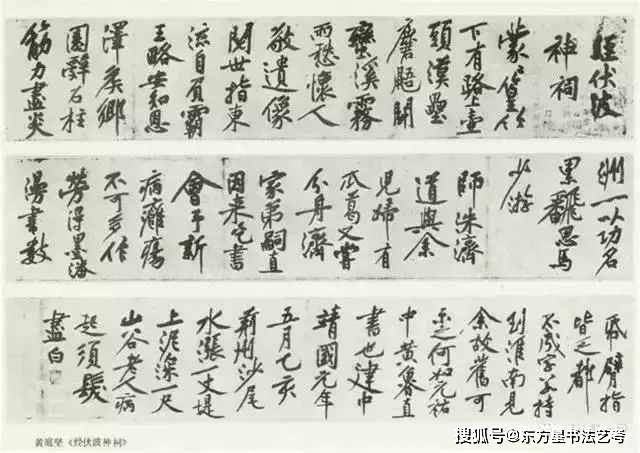 經伏波
神祠
蒙蒙篁竹
下有路上壺
頭漢壘
麏鼯鬥
蠻溪霧
雨愁懷人
敬遺像
閱世指東
流自負霸
王略安知恩
澤侯鄉
園辭石柱
筋力盡炎
洲一以功名
累翻思馬
少游
師洙濟
道與余
兒婦有
瓜葛又嘗
分舟濟
家弟嗣直
因來乞書
會予新
病癰瘍
不可多作
勞得墨瀋
漫書數
紙臂指
皆乏都
不成字若持
到淮南見
余故舊可
示之何如元祐
中黃魯直
書也建中
靖國元年
五月乙亥
荊州沙尾
水漲一丈堤
上泥深一尺
山谷老人病
起須髮
盡白
黄庭坚《经伏波神祠》
搜狐号@东方星书法艺考